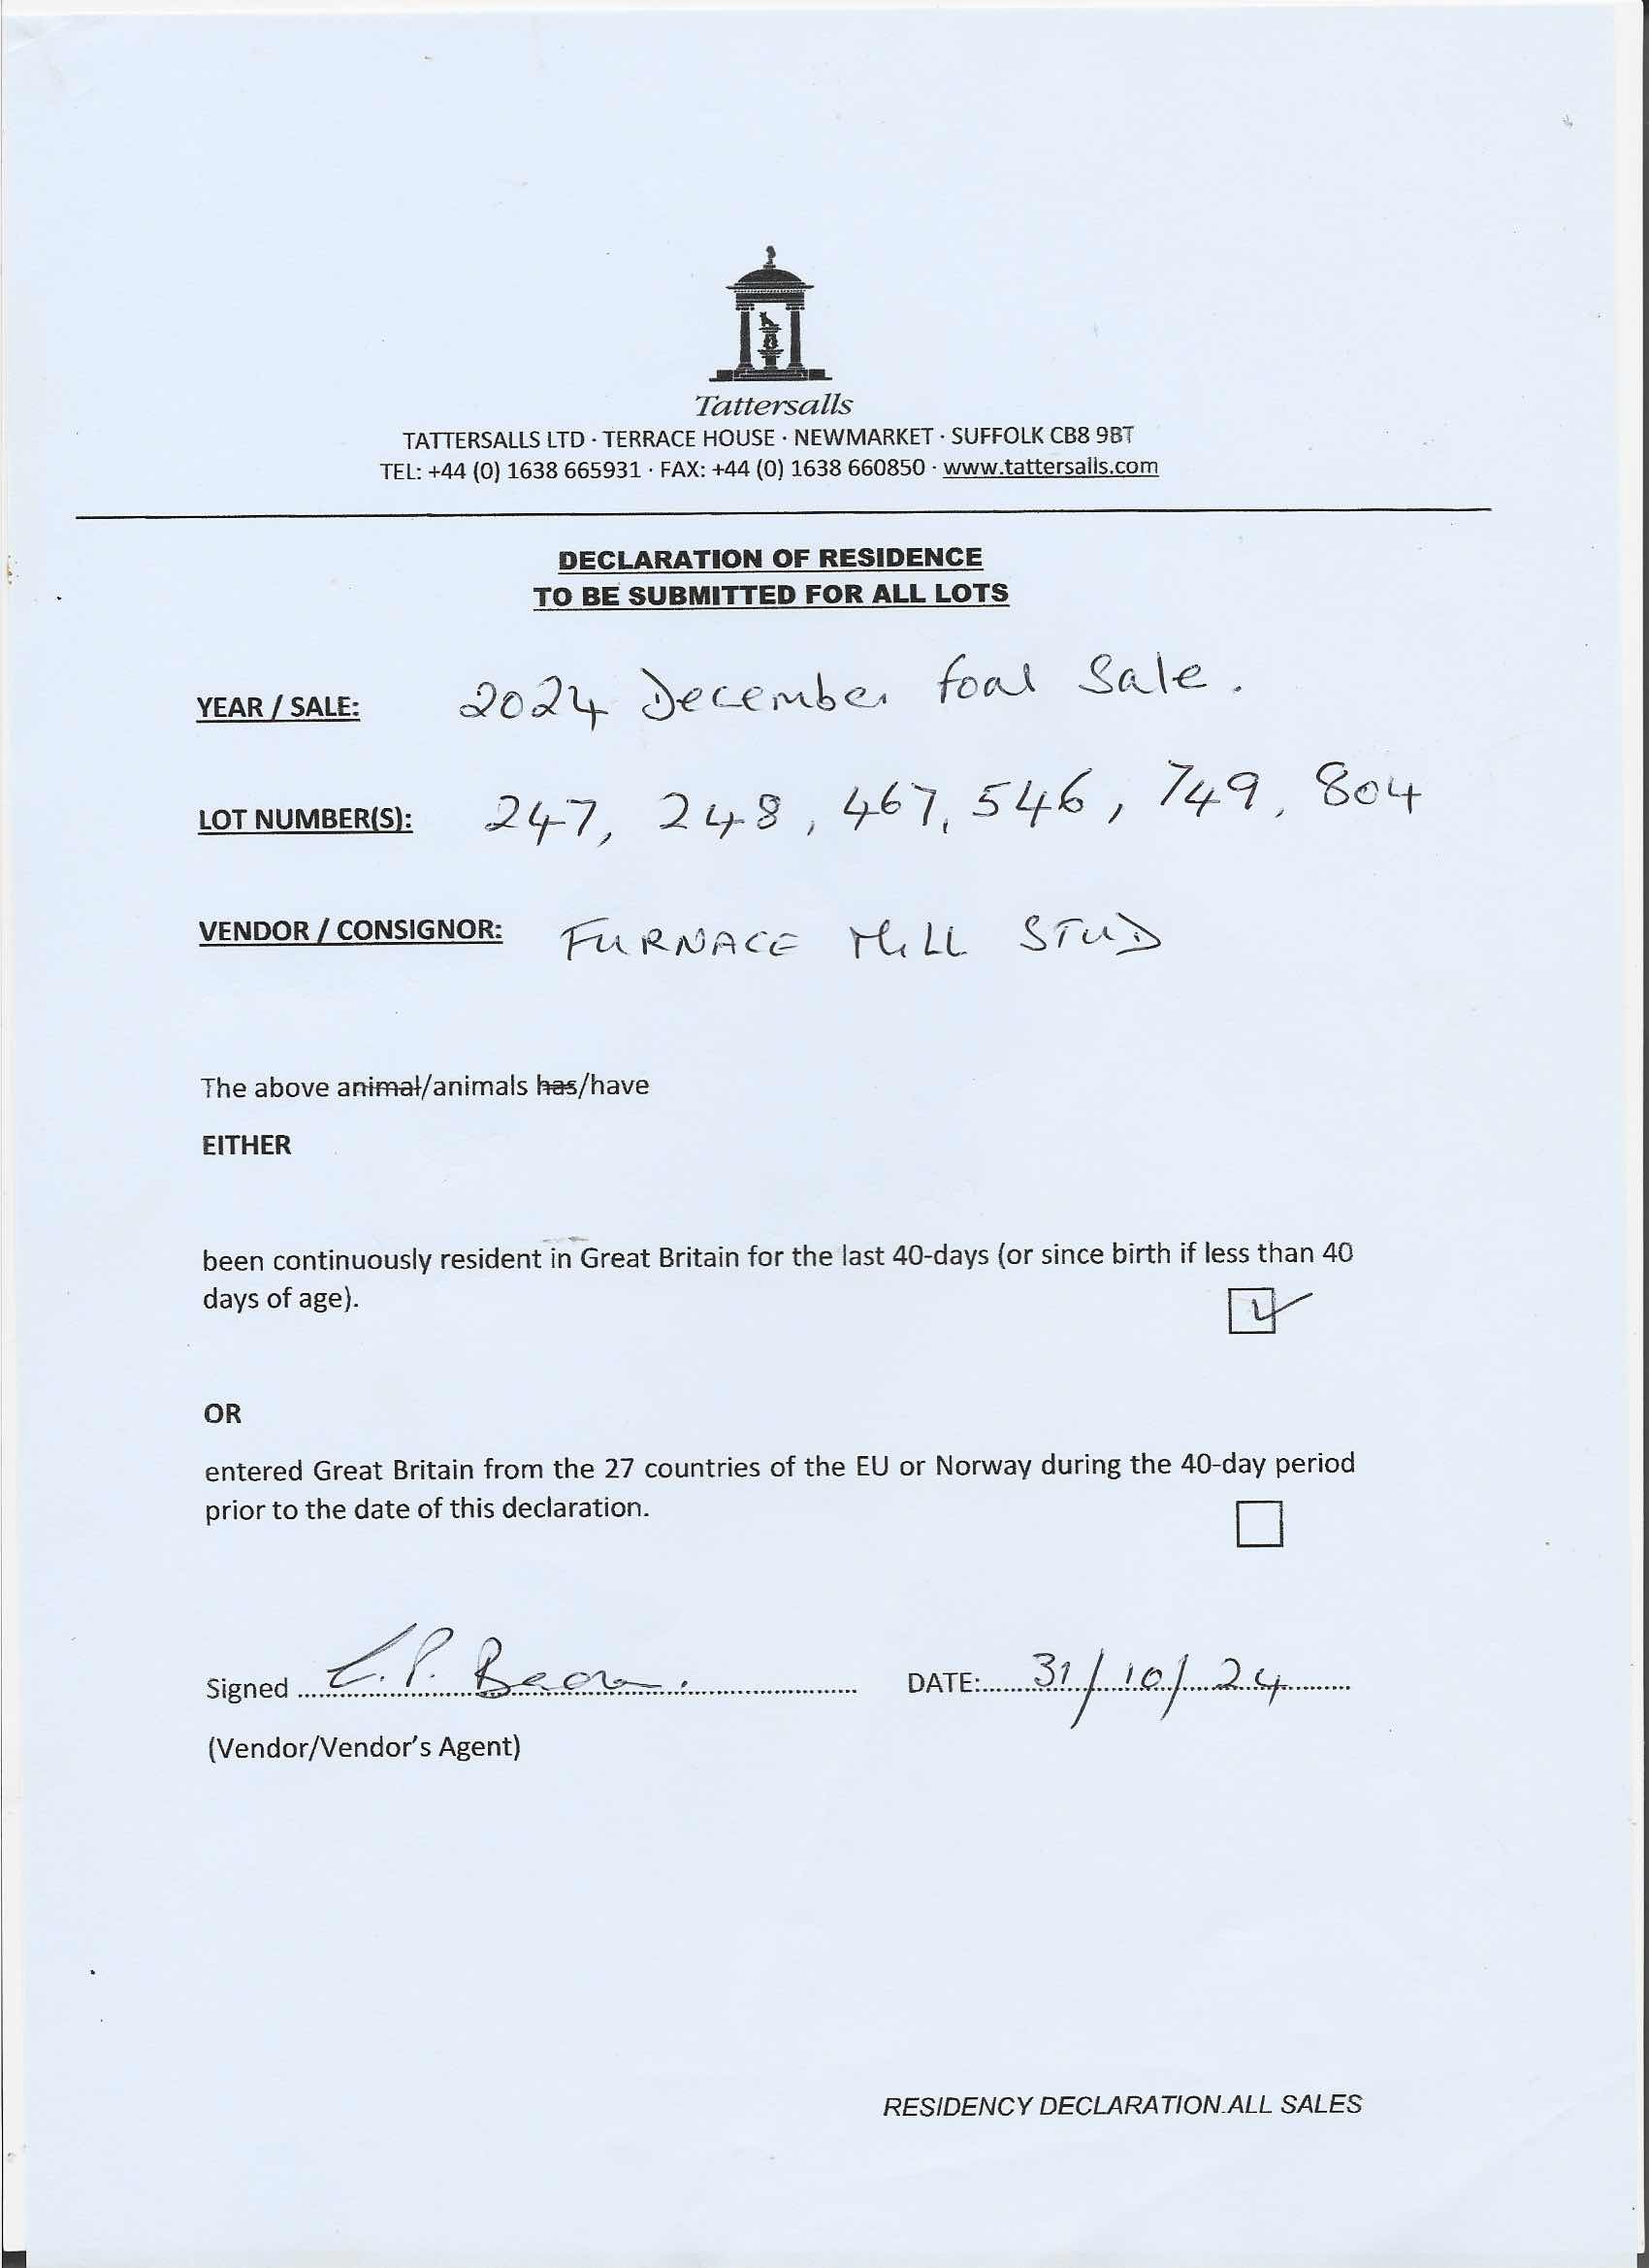 Tattersalls
TATTERSALLS LTD · TERRACE HOUSE · NEWMARKET · SUFFOLK CB8 9BT
TEL: +44 (0) 1638 665931 · FAX: +44 (0) 1638 660850 · www.tattersalls.com
DECLARATION OF RESIDENCE
TO BE SUBMITTED FOR ALL LOTS
YEAR / SALE: 2024 December foal Sale.
LOT NUMBER(S): 247, 248, 467, 546, 749, 804
VENDOR / CONSIGNOR: FURNACE MILL STUD
The above animal/animals has/have
EITHER
been continuously resident in Great Britain for the last 40-days (or since birth if less than 40
days of age).
OR
entered Great Britain from the 27 countries of the EU or Norway during the 40-day period
prior to the date of this declaration.
Signed DATE: 31/10/24
(Vendor/Vendor's Agent)
RESIDENCY DECLARATION.ALL SALES